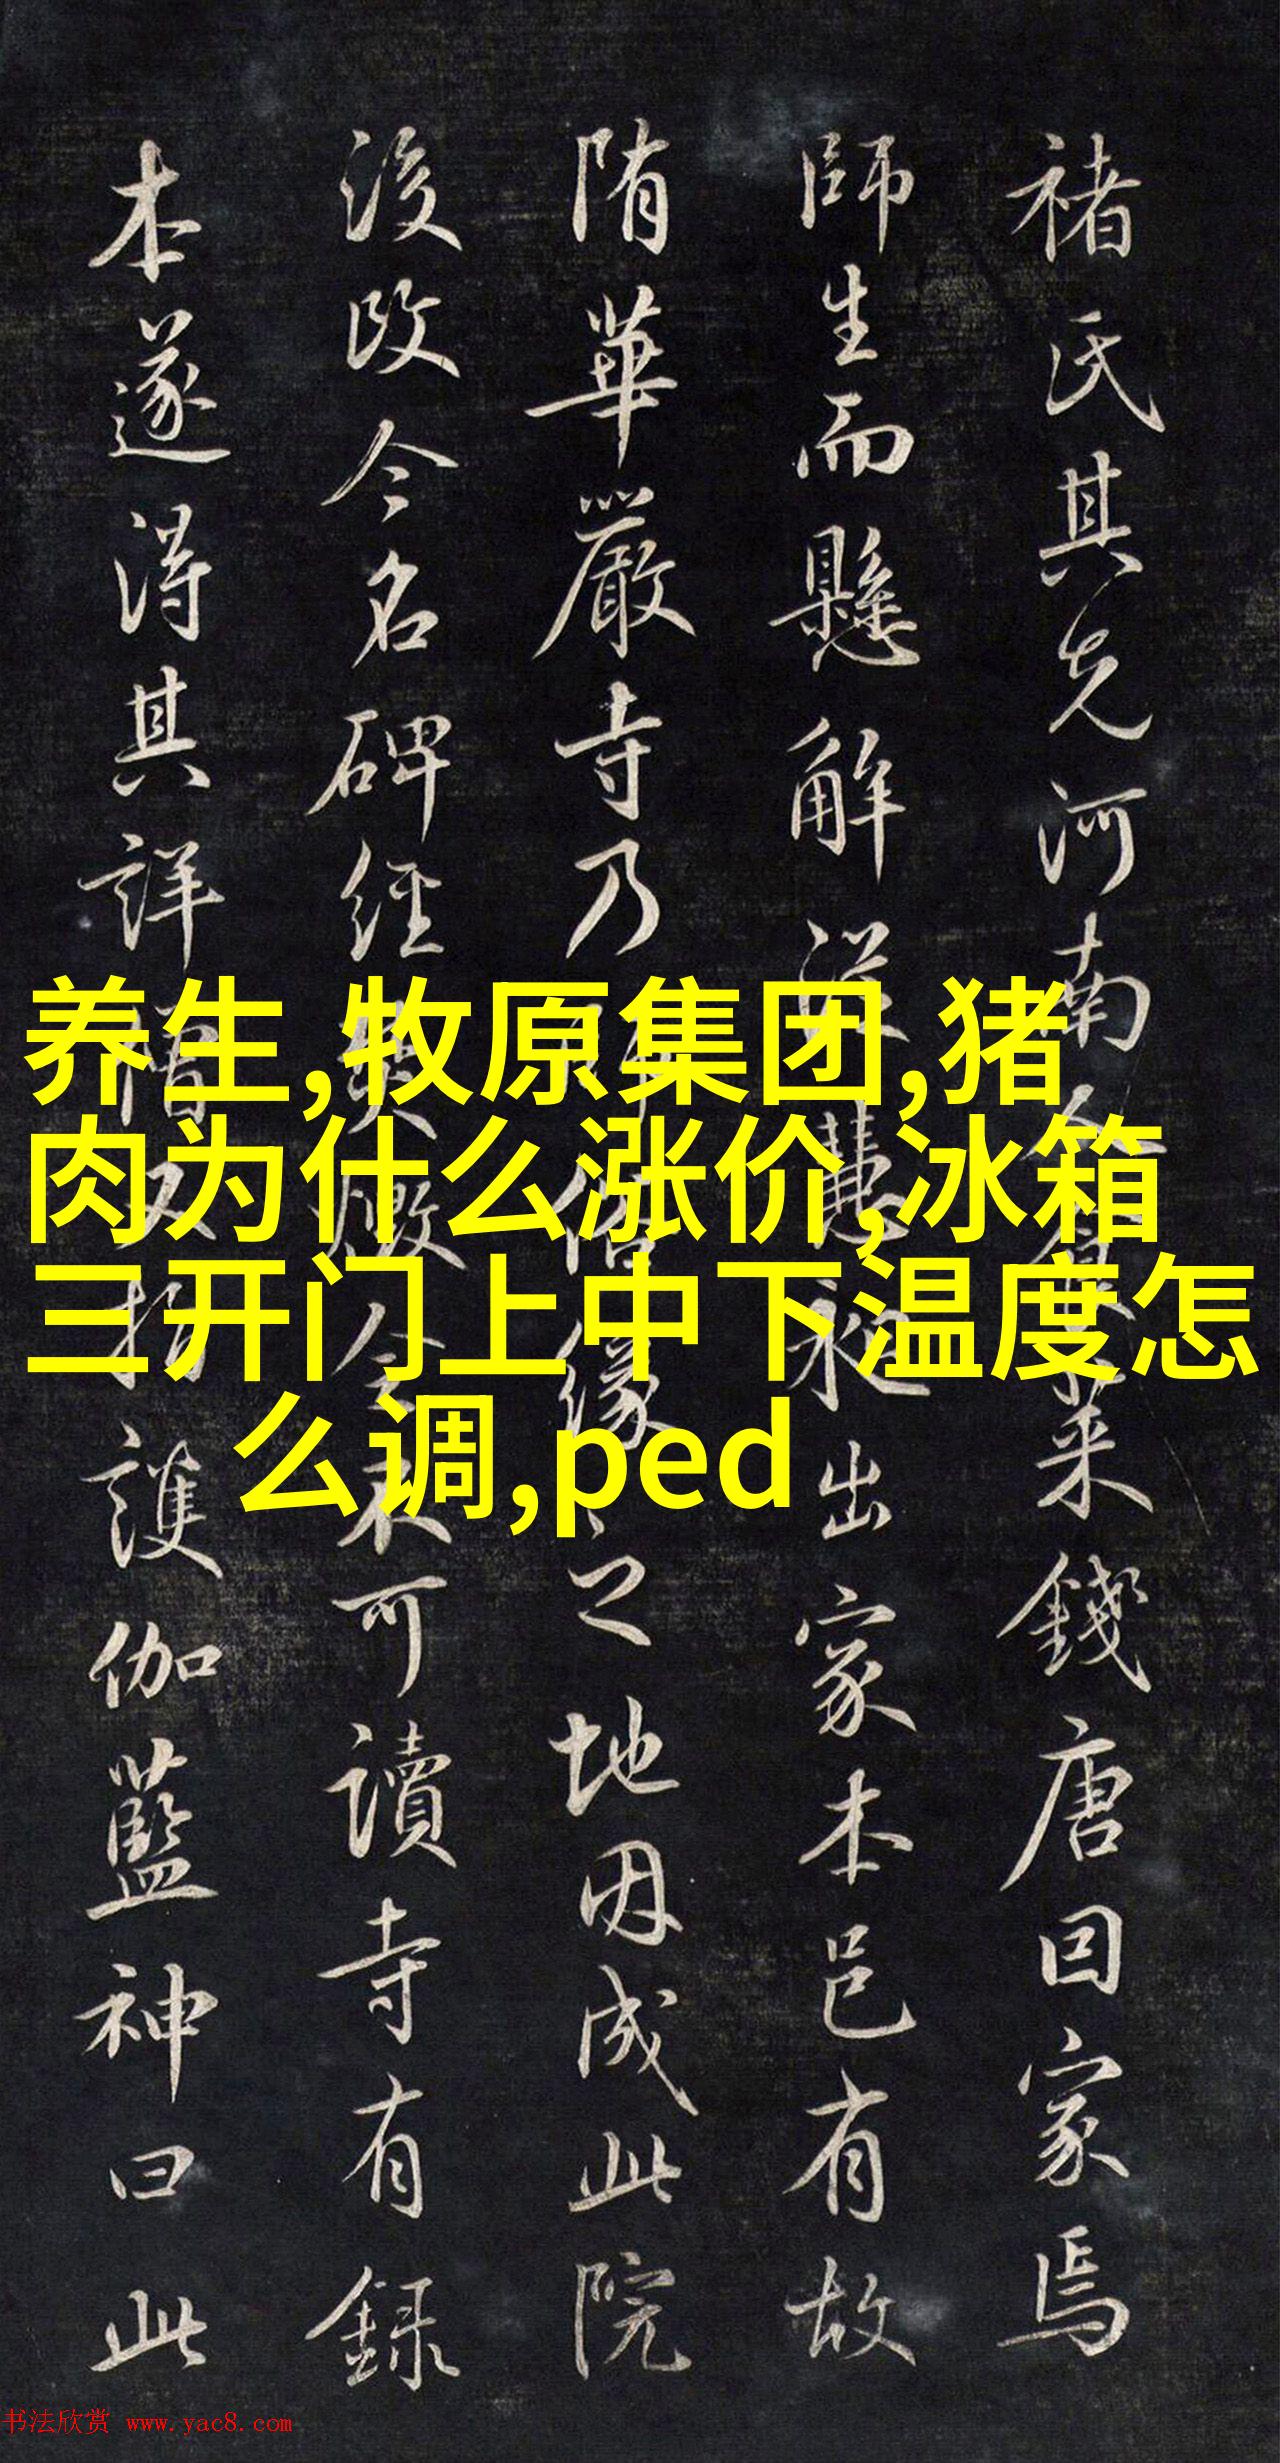 褚氏其先河南人食菜錢唐因家焉
師生而懸解慧出家本邑有故
隋華嚴寺乃緣之地因成此院
後改今名碑經燬今不可讀寺有録
本遂得其詳護伽藍神曰此
养生,牧原集团,猪
肉为什么涨价,冰箱
三开门上中下温度怎
么调,ped
书法欣赏 www.yac8.com